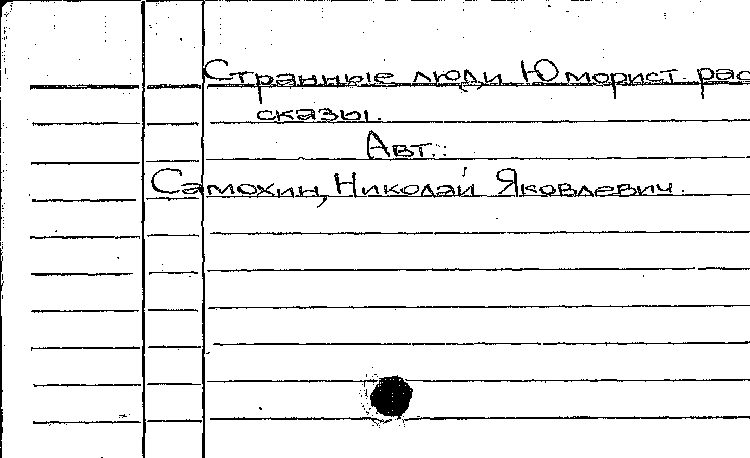 Странные люди Юморист. рас
сказы.
Авт.:
Самохин, Николай Яковлевич.